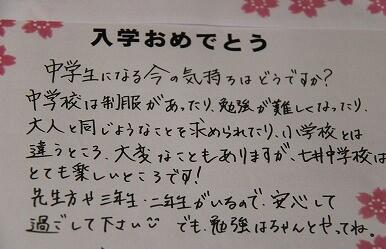 入学おめでとう
中学生になる今の気持ちはどうですか?
中学校は制服があったり、勉強が難しくなったり、
大人と同じようなことを求められたり、小学校とは
違うところ、大変なこともありますが、七井中学校は
とても楽しいところです!
先生方や三年生・二年生がいるので、安心して
過ごして下さい でも、勉強はちゃんとやってね。